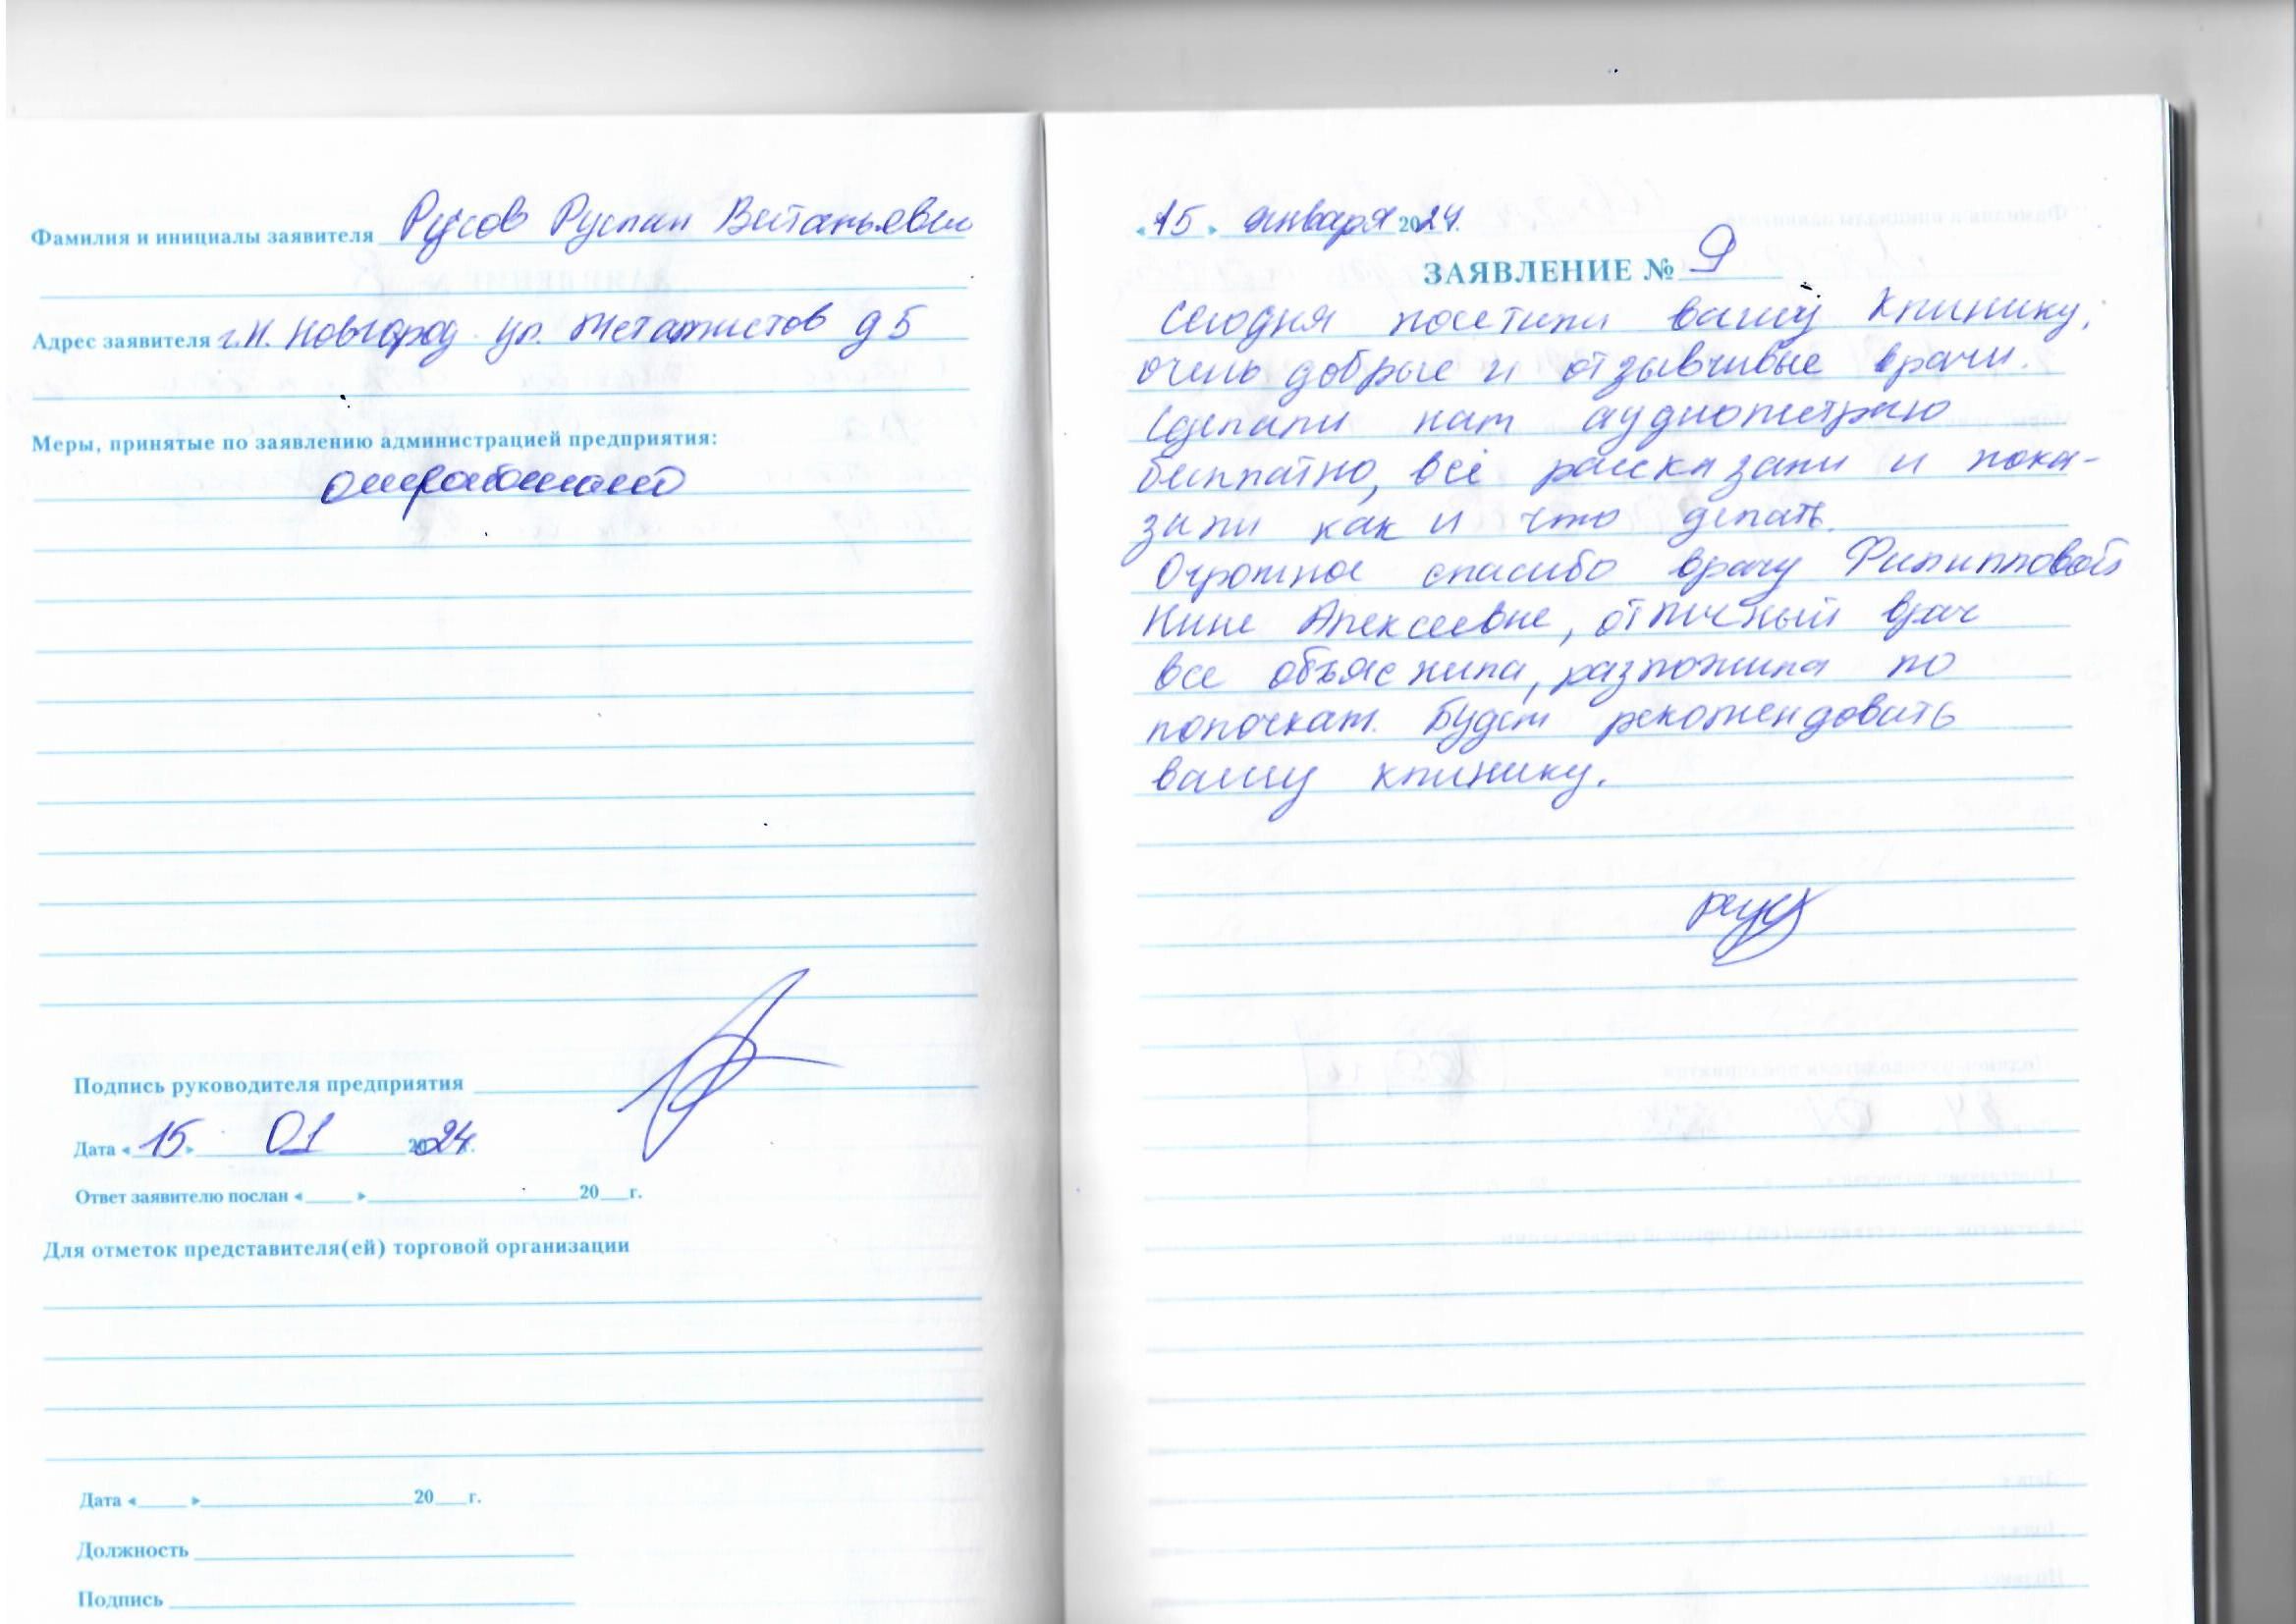 Фамилия и инициалы заявителя Русов Руслан Витальевич
Адрес заявителя г.Н. Новгород ул. Металлистов д 5
Меры, принятые по заявлению администрацией предприятия:
отработано
Подпись руководителя предприятия
Дата «15» 01 2024.
Ответ заявителю послан « » 20 г.
Для отметок представителя(ей) торговой организации
Дата « » 20 г.
Должность
Подпись
«15» января 2024.
ЗАЯВЛЕНИЕ № 9
Сегодня посетили вашу клинику,
очень добрые и отзывчивые врачи.
Сделали нам аудиометрию
бесплатно, всё рассказали и пока-
зали как и что делать.
Огромное спасибо врачу Филипповой
Нине Алексеевне, отличный врач
все объяснила, разложила по
полочкам. Будем рекомендовать
вашу клинику.